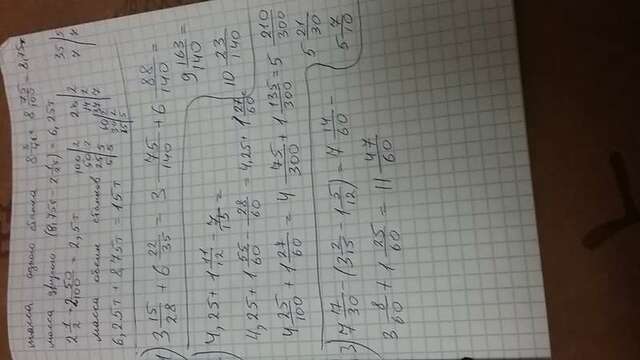 масса одного станка 8 3/4т = 8 75/100 = 8,75т
масса другого (8,75т - 2 1/2т) = 6,25т
2 1/2 = 2 50/100 = 2,5т
масса обоих станков
6,25т + 8,75т = 15т
35 | 5
7 | 7
1) 3 15/28 + 6 22/35 = 3 75/140 + 6 88/140 =
9 163/140
10 23/140
2) 4,25 + 1 11/12 - 7/15 =
4,25 + 1 55/60 - 28/60 = 4,25 + 1 27/60 =
4 25/100 + 1 27/60 = 4 75/300 + 1 135/300 = 5 210/300
5 21/30
5 7/10
3) 7 17/30 - (3 2/15 - 1 5/12) = 7 14/60 -
3 8/60 + 1 25/60 = 11 47/60